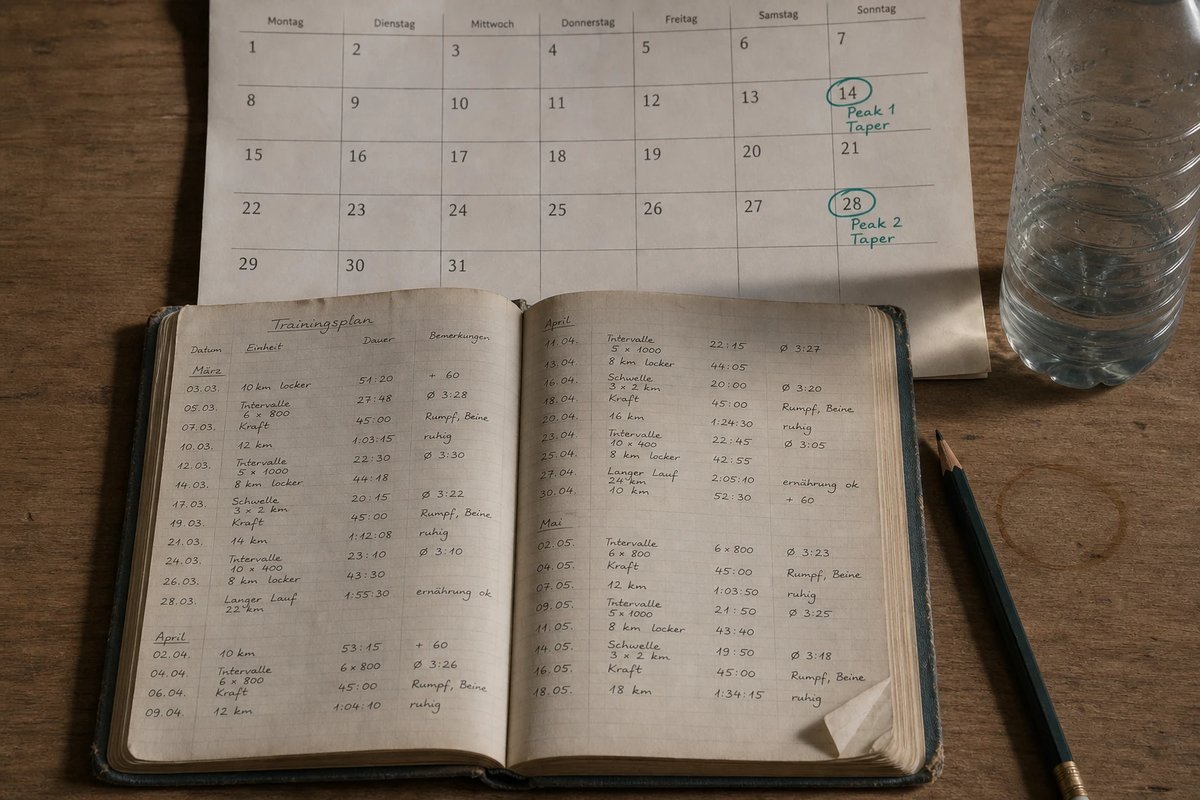 Montag Dienstag Mittwoch Donnerstag Freitag Samstag Sonntag
1 2 3 4 5 6 7
8 9 10 11 12 13 14
Peak 1
Taper
15 16 17 18 19 20 21
22 23 24 25 26 27 28
Peak 2
Taper
29 30 31
Trainingsplan
Datum Einheit Dauer Bemerkungen
März
03.03. 10 km locker 51:20 + 60
05.03. Intervalle 27:48 Ø 3:28
6 × 800
07.03. Kraft 45:00 Rumpf, Beine
10.03. 12 km 1:03:15 ruhig
12.03. Intervalle 22:30 Ø 3:30
5 × 1000
14.03. 8 km locker 44:18
17.03. Schwelle 20:15 Ø 3:22
3 × 2 km
19.03. Kraft 45:00 Rumpf, Beine
21.03. 14 km 1:12:08 ruhig
24.03. Intervalle 23:10 Ø 3:10
10 × 400
26.03. 8 km locker 43:30
28.03. Langer Lauf 1:55:30 ernährung ok
22 km
April
02.04. 10 km 53:15 + 60
04.04. Intervalle 6×800 Ø 3:26
6 × 800
06.04. Kraft 45:00 Rumpf, Beine
09.04. 12 km 1:04:10 ruhig
April
11.04. Intervalle 22:15 Ø 3:27
5 × 1000
13.04. 8 km locker 44:05
16.04. Schwelle 20:00 Ø 3:20
3 × 2 km
18.04. Kraft 45:00 Rumpf, Beine
20.04. 16 km 1:24:30 ruhig
23.04. Intervalle 22:45 Ø 3:05
10 × 400
25.04. 8 km locker 42:55
27.04. Langer Lauf 2:05:10 ernährung ok
24 km
30.04. 10 km 52:30 + 60
Mai
02.05. Intervalle 6×800 Ø 3:23
6 × 800
04.05. Kraft 45:00 Rumpf, Beine
07.05. 12 km 1:03:50 ruhig
09.05. Intervalle 21:50 Ø 3:25
5 × 1000
11.05. 8 km locker 43:40
14.05. Schwelle 19:50 Ø 3:18
3 × 2 km
16.05. Kraft 45:00 Rumpf, Beine
18.05. 18 km 1:34:15 ruhig